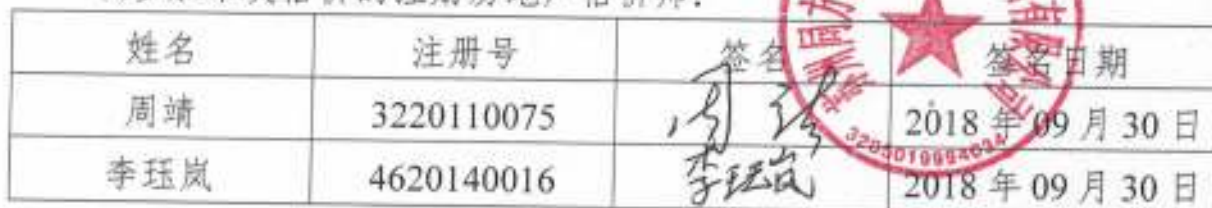 姓名 注册号 签名 签名日期
周靖 3220110075 周靖 2018 年 09 月 30 日
李珏岚 4620140016 李珏岚 2018 年 09 月 30 日